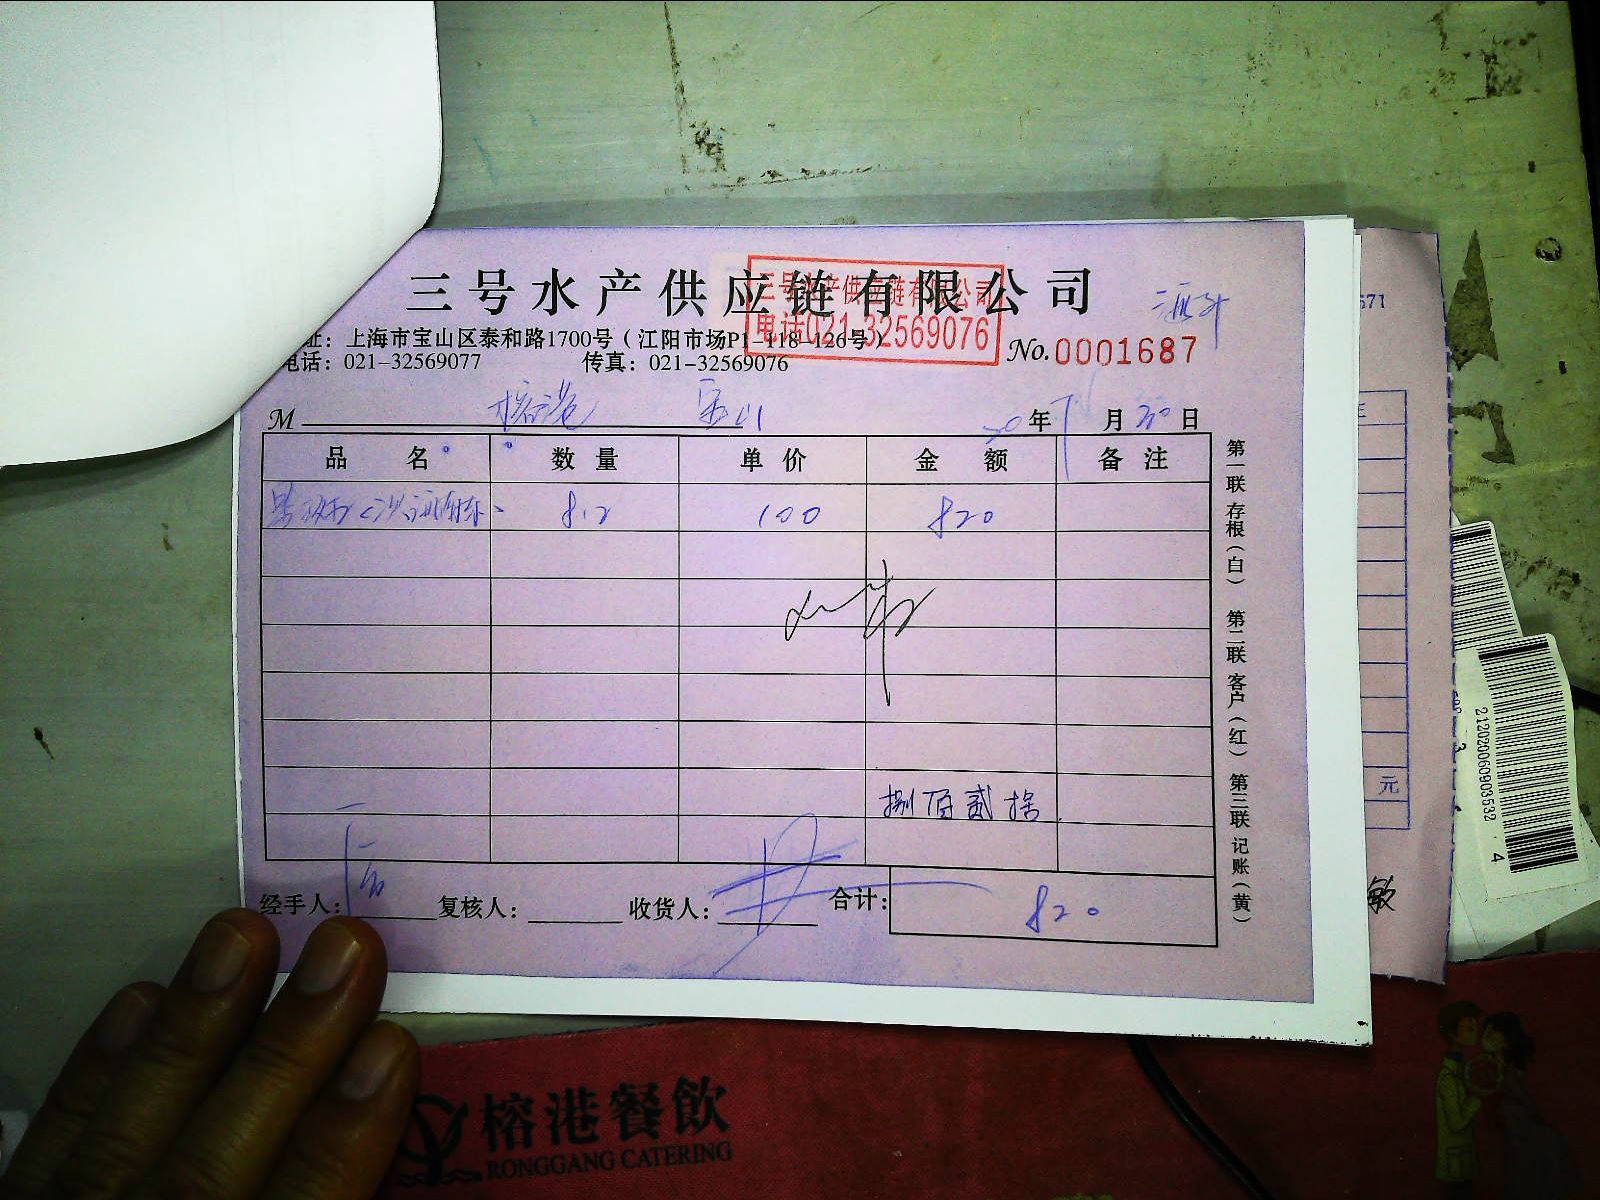 三号水产供应链有限公司
三号水产供应链有限公司
电话021-32569076
址：上海市宝山区泰和路1700号（江阳市场P1-118-126号）
电话：021-32569077 传真：021-32569076
No.0001687
M 榕港 宝山 20年 月30日
品名 数量 单价 金额 备注
8.2 100 820
捌佰贰拾
经手人： 复核人： 收货人： 合计： 820
第一联 存根（白） 第二联 客户（红） 第三联 记账（黄）
671
元
敏
212020060903532 4
榕港餐飲
RONGGANG CATERING